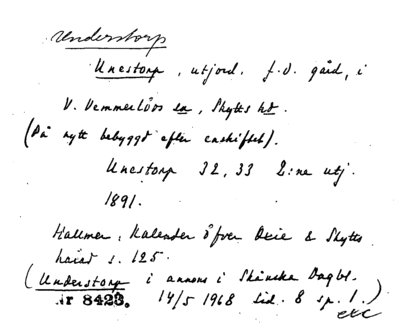 Understorp
Unestorp, utjord. f.d. gård, i
V. Vemmerlövs sn, Skytts hd.
(På nytt bebyggd efter enskiftet).
Unestorp 32, 33 2:ne utj.
1891.
Hallmer, Kalender öfver Oxie & Skytts
härad s. 125.
(Understorp i annons i Skånska Dagbl.
Nr 8423. 14/5 1968 sid. 8 sp. 1.)